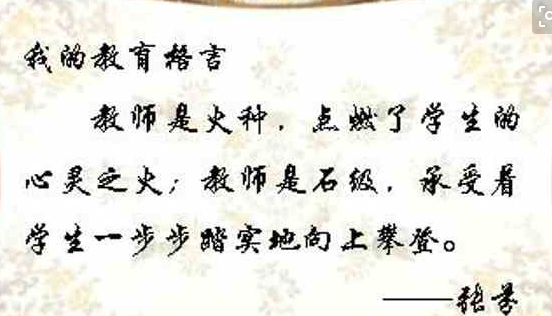 我的教育格言
教师是火种,点燃了学生的
心灵之火;教师是石级,承受着
学生一步步踏实地向上攀登。
——张芬